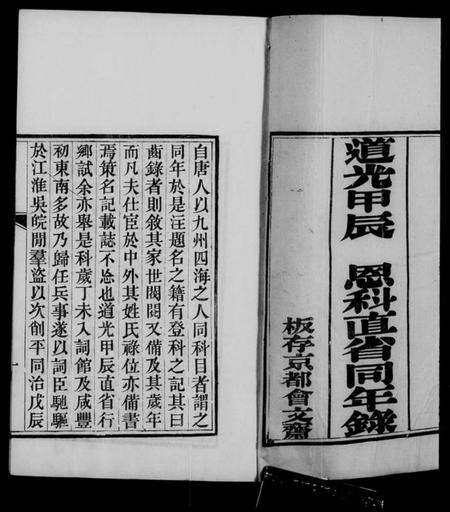 道光甲辰 恩科直省同年錄
板存京都會文齋
自唐人以九州四海之人同科目者謂之
同年於是注題名之籍有登科之記其曰
齒錄者則敘其家世閥閱又備及其歲年
而凡夫仕宦於中外其姓氏祿位亦備書
焉策名記載誌不忘也道光甲辰直省行
鄉試余亦舉是科歲丁未入詞館及咸豐
初東南多故乃歸任兵事遂以詞臣馳驅
於江淮吳皖閒羣盜以次創平同治戊辰